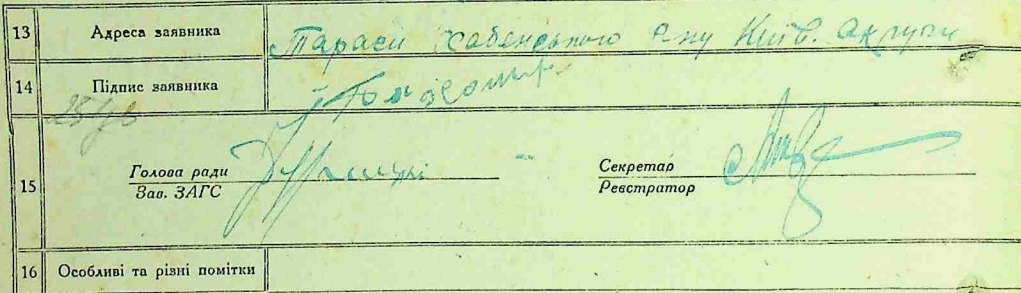 13 Адреса заявника Тараси Хабенського р-ну Київ. округи
14 Підпис заявника
15 Голова ради Секретар
Зав. ЗАГС Реєстратор
16 Особливі та різні помітки